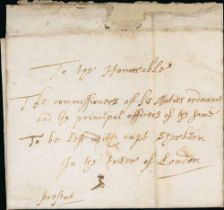 To the Honorable
The commissioners of his Maties ordnance
and the principal officers of the same
To be left with capt Sherburn
In the Tower of London
present